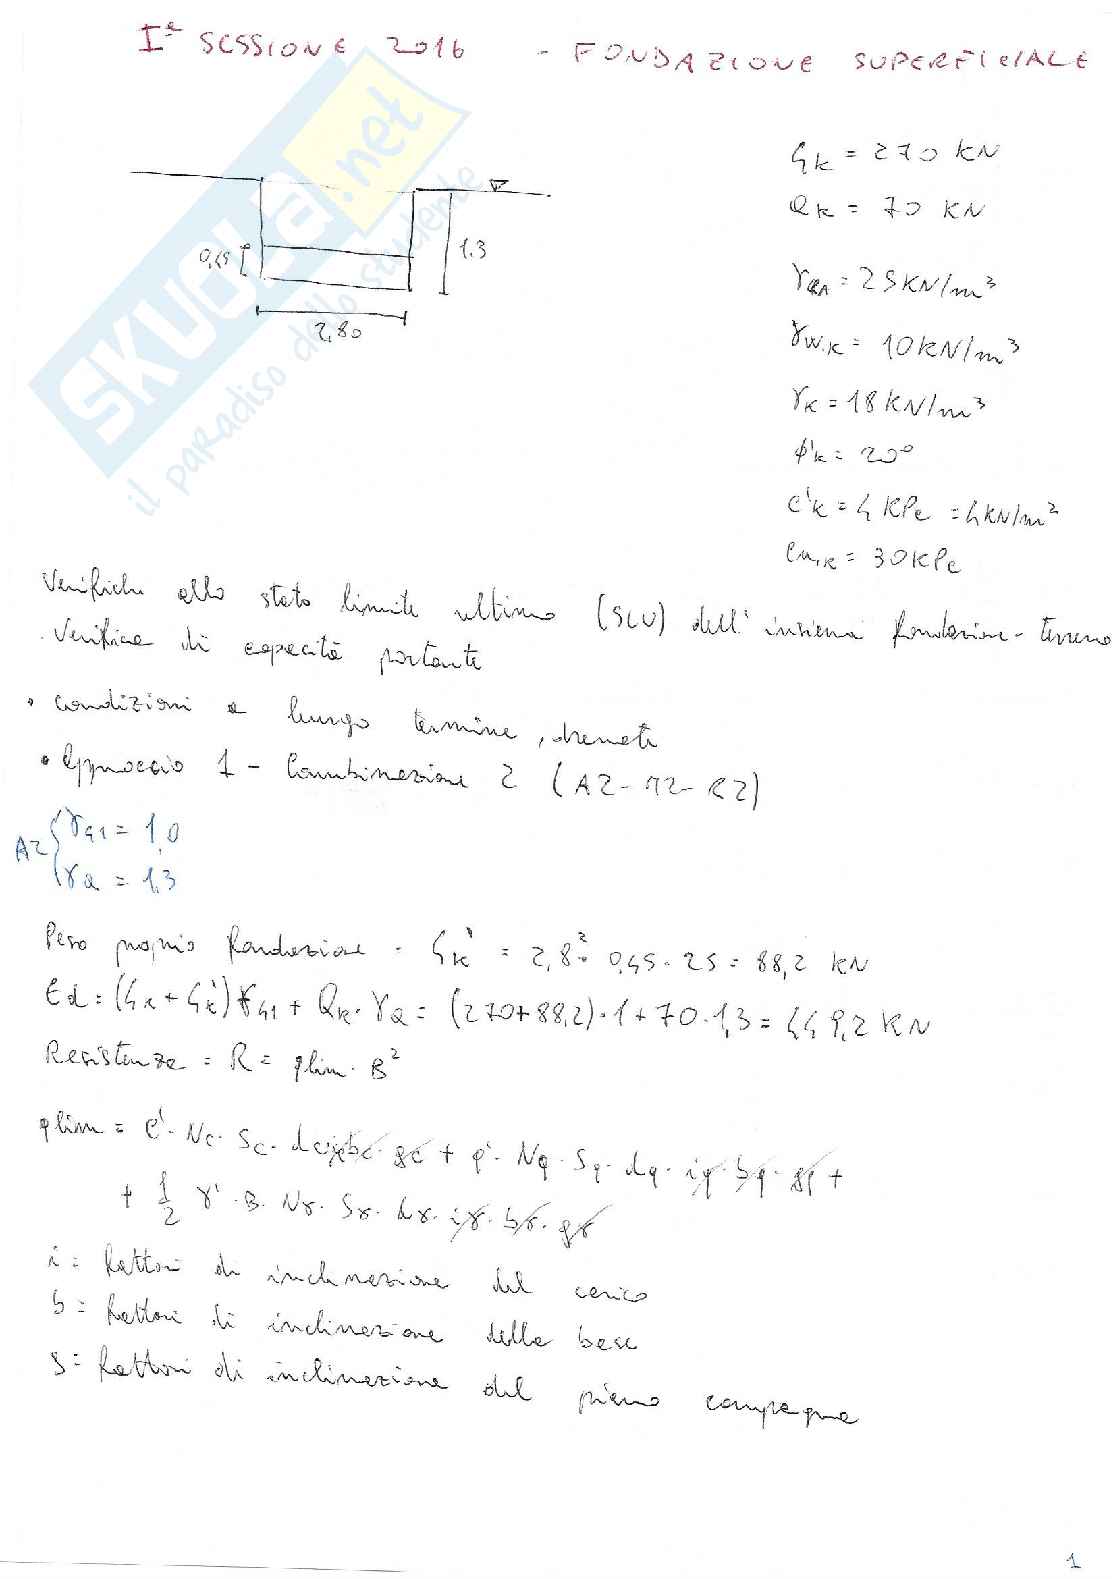 Iª SESSIONE 2016 - FONDAZIONE SUPERFICIALE
Gk = 270 KN
Qk = 70 KN
γca = 25 KN/m³
γw,k = 10 KN/m³
γk = 18 KN/m³
φ'k = 20°
c'k = 4 KPa = 4 KN/m²
cu,k = 30 KPa
0,45
1.3
2,80
SKUOLA.net
il paradiso dello studente
Verifiche allo stato limite ultimo (SLU) dell'insieme fondazione - terreno
. Verifica di capacità portante
• condizioni a lungo termine, drenate
• Approccio 1 - Combinazione 2 (A2 - M2 - R2)
A2 { γG1 = 1,0
γQ = 1,3
Peso proprio fondazione = Gk' = 2,8² · 0,45 · 25 = 88,2 KN
Ed = (Gk + Gk') γG1 + Qk · γQ = (270 + 88,2) · 1 + 70 · 1,3 = 449,2 KN
Resistenza = R = qlim · B²
qlim = c' · Nc · Sc · dc · ic · bc · gc + q' · Nq · Sq · dq · iq · bq · gq +
+ 1/2 γ' · B · Nγ · Sγ · dγ · iγ · bγ · gγ
i = fattori di inclinazione del carico
b = fattori di inclinazione della base
g = fattori di inclinazione del piano campagna
1